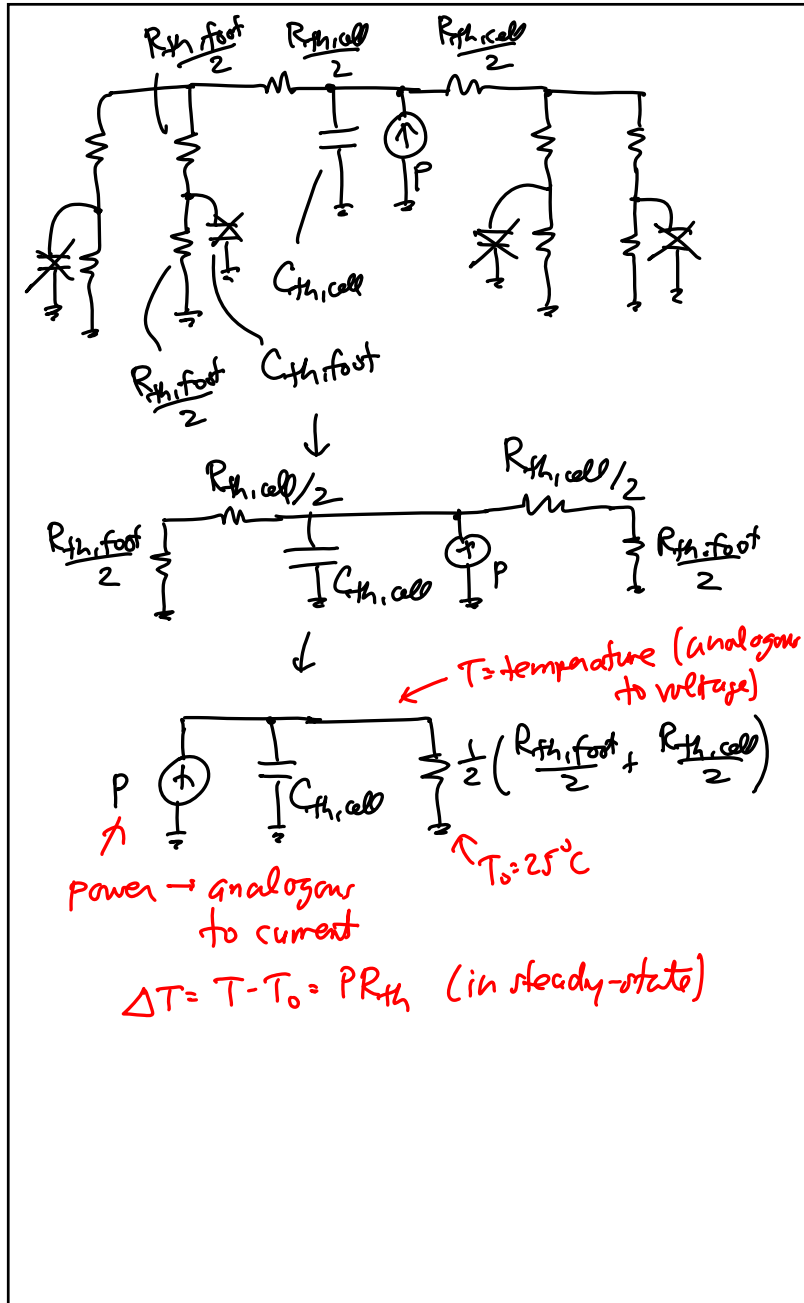 R_th,foot/2 R_th,cell/2 R_th,cell/2
P
C_th,cell
R_th,foot/2 C_th,foot
↓
R_th,cell/2 R_th,cell/2
R_th,foot/2 C_th,cell P R_th,foot/2
↓
T=temperature (analogous
to voltage)
P C_th,cell 1/2 (R_th,foot/2 + R_th,cell/2)
T₀=25°C
power → analogous
to current
ΔT= T-T₀= PR_th (in steady-state)